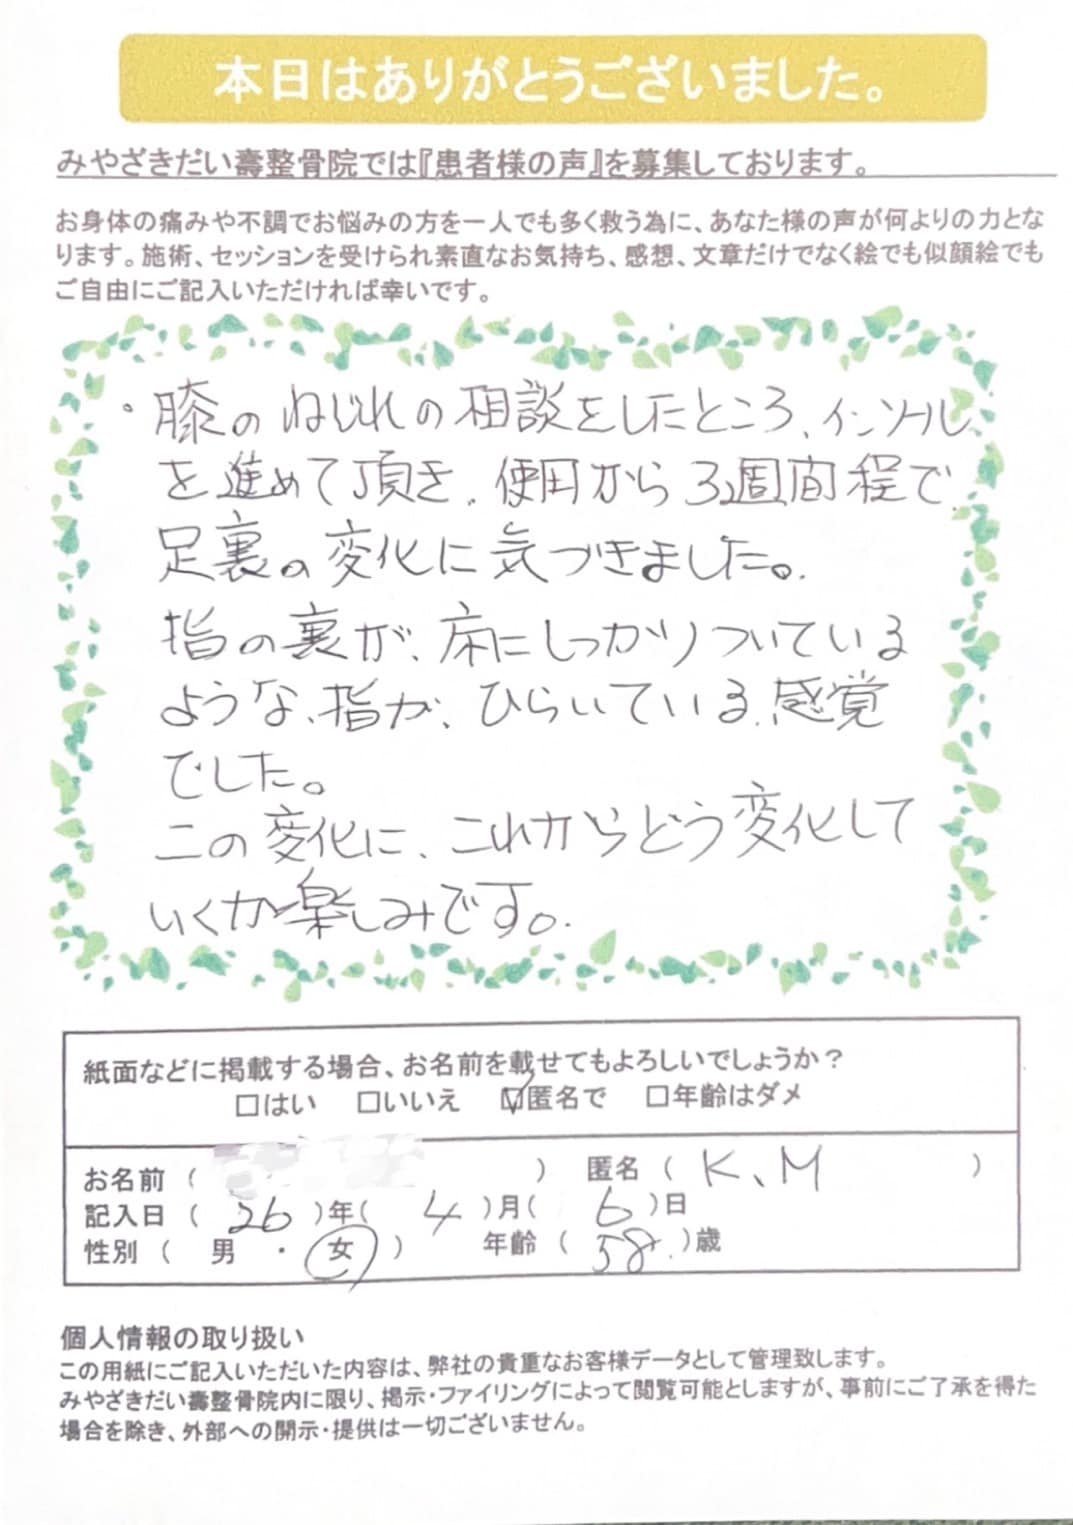 本日はありがとうございました。
みやざきだい壽整骨院では『患者様の声』を募集しております。
お身体の痛みや不調でお悩みの方を一人でも多く救う為に、あなた様の声が何よりの力とな
ります。施術、セッションを受けられ素直なお気持ち、感想、文章だけでなく絵でも似顔絵でも
ご自由にご記入いただければ幸いです。
・膝のねじれの相談をしたところ、インソール
を進めて頂き、使用から3週間程で
足裏の変化に気づきました。
指の裏が、床にしっかりついている
ような、指が、ひらいている感覚
でした。
この変化に、これからどう変化して
いくか楽しみです。
紙面などに掲載する場合、お名前を載せてもよろしいでしょうか？
□はい □いいえ ☑匿名で □年齢はダメ
お名前（ ） 匿名（ K、M ）
記入日（ 26 ）年（ 4 ）月（ 6 ）日
性別（ 男 ・ 女 ） 年齢（ 58 ）歳
個人情報の取り扱い
この用紙にご記入いただいた内容は、弊社の貴重なお客様データとして管理致します。
みやざきだい壽整骨院内に限り、掲示・ファイリングによって閲覧可能としますが、事前にご了承を得た
場合を除き、外部への開示・提供は一切ございません。